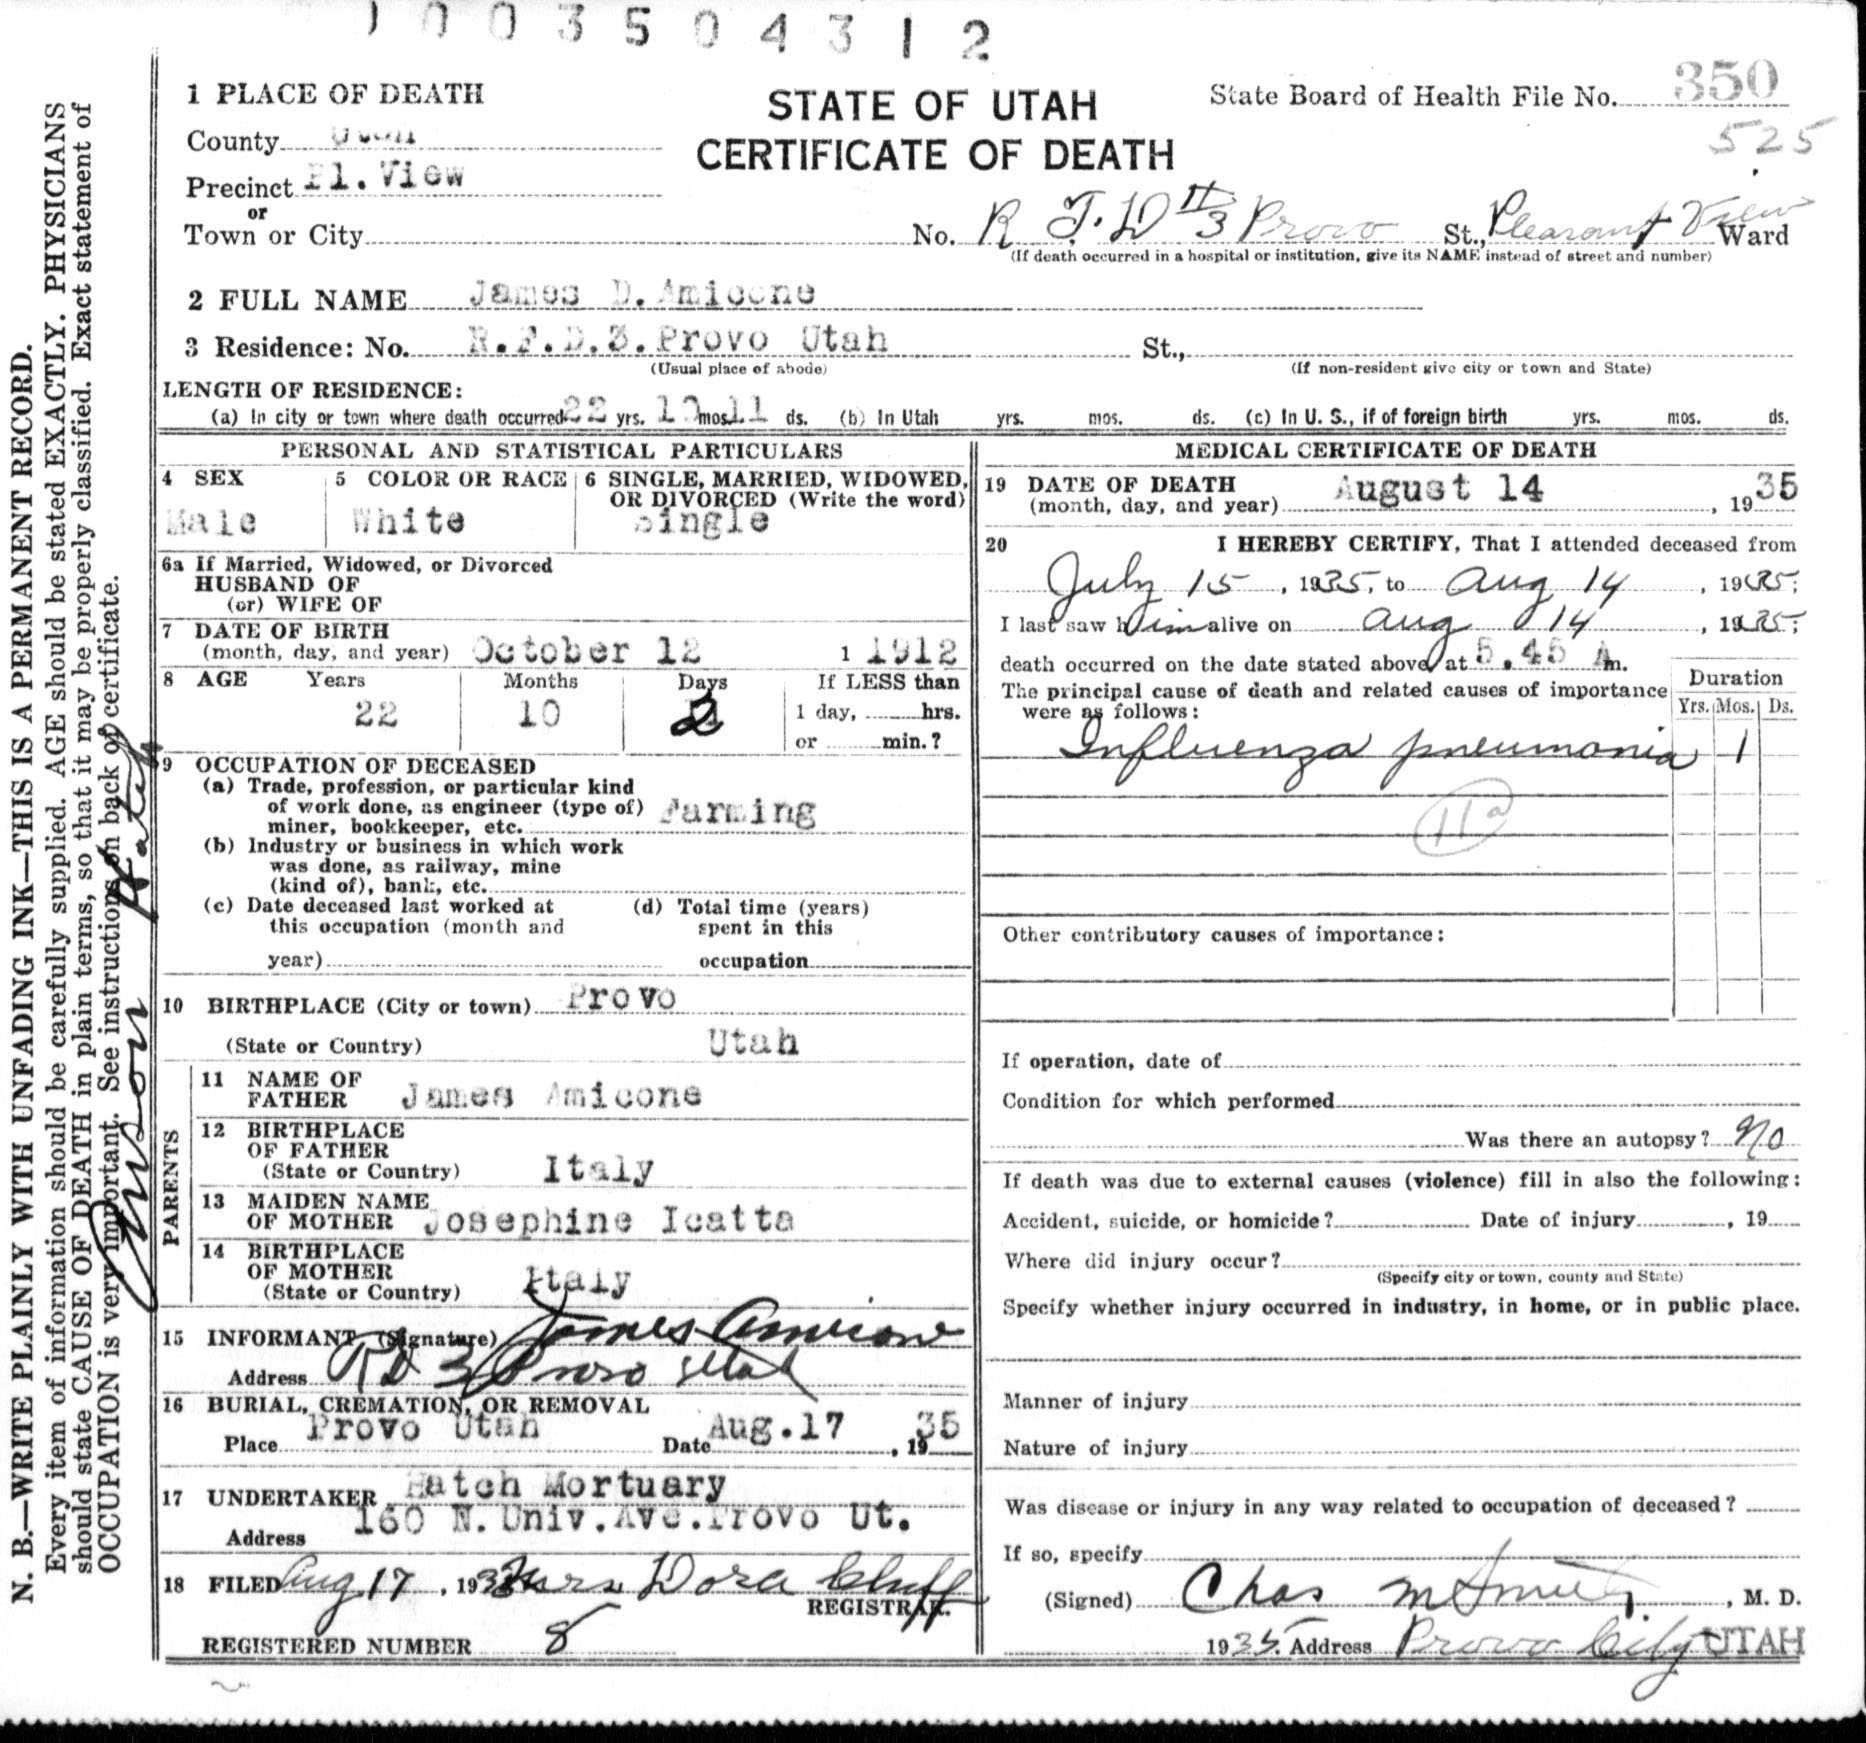 1003504312
1 PLACE OF DEATH
STATE OF UTAH
CERTIFICATE OF DEATH
State Board of Health File No. 350
525
County Utah
Precinct Pl. View
or
Town or City No. R. F. D #3 Provo St., Pleasant View Ward
(If death occurred in a hospital or institution, give its NAME instead of street and number)
2 FULL NAME James D. Amicone
3 Residence: No. R.F.D.3. Provo Utah St.,
(Usual place of abode) (If non-resident give city or town and State)
LENGTH OF RESIDENCE:
(a) In city or town where death occurred 22 yrs. 10 mos. 11 ds. (b) In Utah yrs. mos. ds. (c) In U. S., if of foreign birth yrs. mos. ds.
PERSONAL AND STATISTICAL PARTICULARS
4 SEX 5 COLOR OR RACE 6 SINGLE, MARRIED, WIDOWED,
OR DIVORCED (Write the word)
Male White Single
6a If Married, Widowed, or Divorced
HUSBAND OF
(or) WIFE OF
7 DATE OF BIRTH
(month, day, and year) October 12 1 1912
8 AGE Years Months Days If LESS than
22 10 2 1 day, hrs.
or min.?
9 OCCUPATION OF DECEASED
(a) Trade, profession, or particular kind
of work done, as engineer (type of) Farming
miner, bookkeeper, etc.
(b) Industry or business in which work
was done, as railway, mine
(kind of), bank, etc.
(c) Date deceased last worked at (d) Total time (years)
this occupation (month and spent in this
year) occupation
10 BIRTHPLACE (City or town) Provo
(State or Country) Utah
PARENTS
11 NAME OF
FATHER James Amicone
12 BIRTHPLACE
OF FATHER
(State or Country) Italy
13 MAIDEN NAME
OF MOTHER Josephine Icatta
14 BIRTHPLACE
OF MOTHER Italy
(State or Country)
15 INFORMANT (Signature) James Amicone
Address RD 3 Provo Utah
16 BURIAL, CREMATION, OR REMOVAL
Place Provo Utah Date Aug. 17, 1935
17 UNDERTAKER Hatch Mortuary
Address 160 N. Univ. Ave. Provo Ut.
18 FILED Aug 17, 1935 Mrs Dora Cluff
REGISTRAR.
REGISTERED NUMBER 8
MEDICAL CERTIFICATE OF DEATH
19 DATE OF DEATH
(month, day, and year) August 14, 1935
20 I HEREBY CERTIFY, That I attended deceased from
July 15, 1935, to Aug 14, 1935;
I last saw him alive on Aug 14, 1935;
death occurred on the date stated above, at 5.45 A m.
The principal cause of death and related causes of importance
were as follows:
Duration
Yrs. Mos. Ds.
Influenza pneumonia 1
11a
Other contributory causes of importance:
If operation, date of
Condition for which performed
Was there an autopsy? No
If death was due to external causes (violence) fill in also the following:
Accident, suicide, or homicide? Date of injury, 19
Where did injury occur?
(Specify city or town, county and State)
Specify whether injury occurred in industry, in home, or in public place.
Manner of injury
Nature of injury
Was disease or injury in any way related to occupation of deceased?
If so, specify
(Signed) Chas M Smith, M. D.
1935. Address Provo City UTAH
N. B.—WRITE PLAINLY WITH UNFADING INK—THIS IS A PERMANENT RECORD.
Every item of information should be carefully supplied. AGE should be stated EXACTLY. PHYSICIANS
should state CAUSE OF DEATH in plain terms, so that it may be properly classified. Exact statement of
OCCUPATION is very important. See instructions on back of certificate.
Hatch